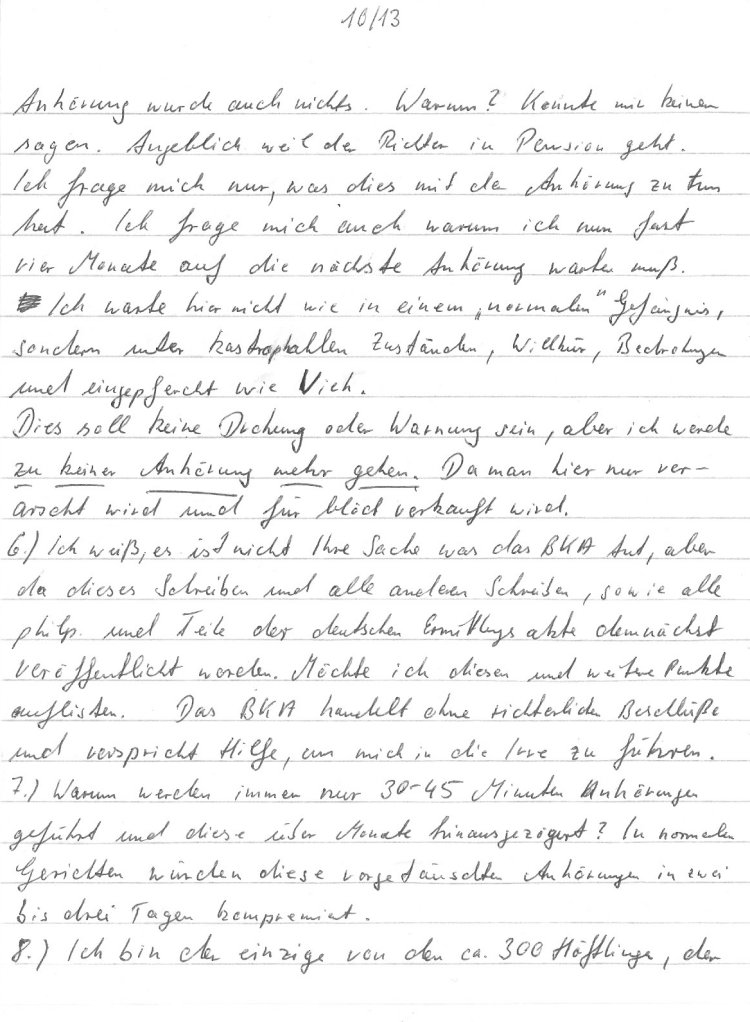 10/13
Anhörung wurde auch nichts. Warum? Konnte mir keiner
sagen. Angeblich weil der Richter in Pension geht.
Ich frage mich nur, was dies mit der Anhörung zu tun
hat. Ich frage mich auch warum ich nun fast
vier Monate auf die nächste Anhörung warten muß.
Ich warte hier nicht wie in einem „normalen" Gefängnis,
sondern unter kastrophahlen Zuständen, Willkür, Bedrohungen
und eingepfercht wie Vieh.
Dies soll keine Drohung oder Warnung sein, aber ich werde
zu keiner Anhörung mehr gehen. Da man hier nur ver-
arscht wird und für blöd verkauft wird.
6.) Ich weiß, es ist nicht Ihre Sache was das BKA tut, aber
da dieses Schreiben und alle anderen Schreiben, sowie alle
philp. und Teile der deutschen Ermittlugs akte demnächst
veröffentlicht werden. Möchte ich diesen und weitere Punkte
auflisten. Das BKA handelt ohne richterlichen Beschlüße
und verspricht Hilfe, um mich in die Irre zu führen.
7.) Warum werden immer nur 30-45 Minuten Anhörungen
geführt und diese über Monate hinausgezögert? In normalen
Gerichten würden diese vorgetäuschten Anhörungen in zwei
bis drei Tagen kompremiert.
8.) Ich bin der einzige von den ca. 300 Häftlingen, der